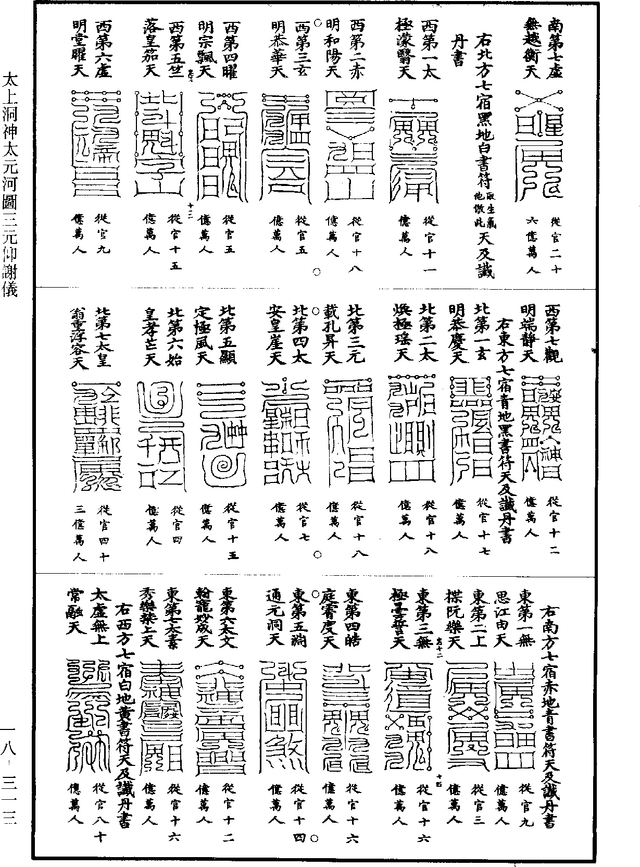 南第七虛
無越衡天
從官二十
六億萬人
右北方七宿黑地白書符取生氣他倣此天及讖
丹書
西第一太
極濛翳天
從官十一
億萬人
西第二赤
明和陽天
從官十八
億萬人
西第三玄
明恭華天
從官五
億萬人
西第四曜
明宗飄天
從官五
億萬人
西第五竺
落皇笳天
從官十五
億萬人
西第六虛
明堂曜天
從官九
億萬人
西第七觀
明端靜天
從官十二
億萬人
右東方七宿青地黑書符天及讖丹書
北第一玄
明恭慶天
從官十七
億萬人
北第二太
煥極瑶天
從官十八
億萬人
北第三元
載孔昇天
從官十八
億萬人
北第四太
安皇崖天
從官七
億萬人
北第五顯
定極風天
從官十五
億萬人
北第六始
皇孝芒天
從官四
億萬人
北第七太皇
翁重浮容天
從官四十
三億萬人
右南方七宿赤地青書符天及讖丹書
東第一無
思江由天
從官九
億萬人
東第二上
揲阮樂天
從官三
億萬人
東第三無
極曇誓天
從官十六
億萬人
東第四皓
庭霄度天
從官十六
億萬人
東第五淵
通元洞天
從官十四
億萬人
東第六太文
翰寵妙成天
從官十二
億萬人
東第七太素
秀樂禁上天
從官十六
億萬人
右西方七宿白地黃書符天及讖丹書
太虛無上
常融天
從官八十
億萬人
太上洞神太元河圖三元仰謝儀
一八-三一三